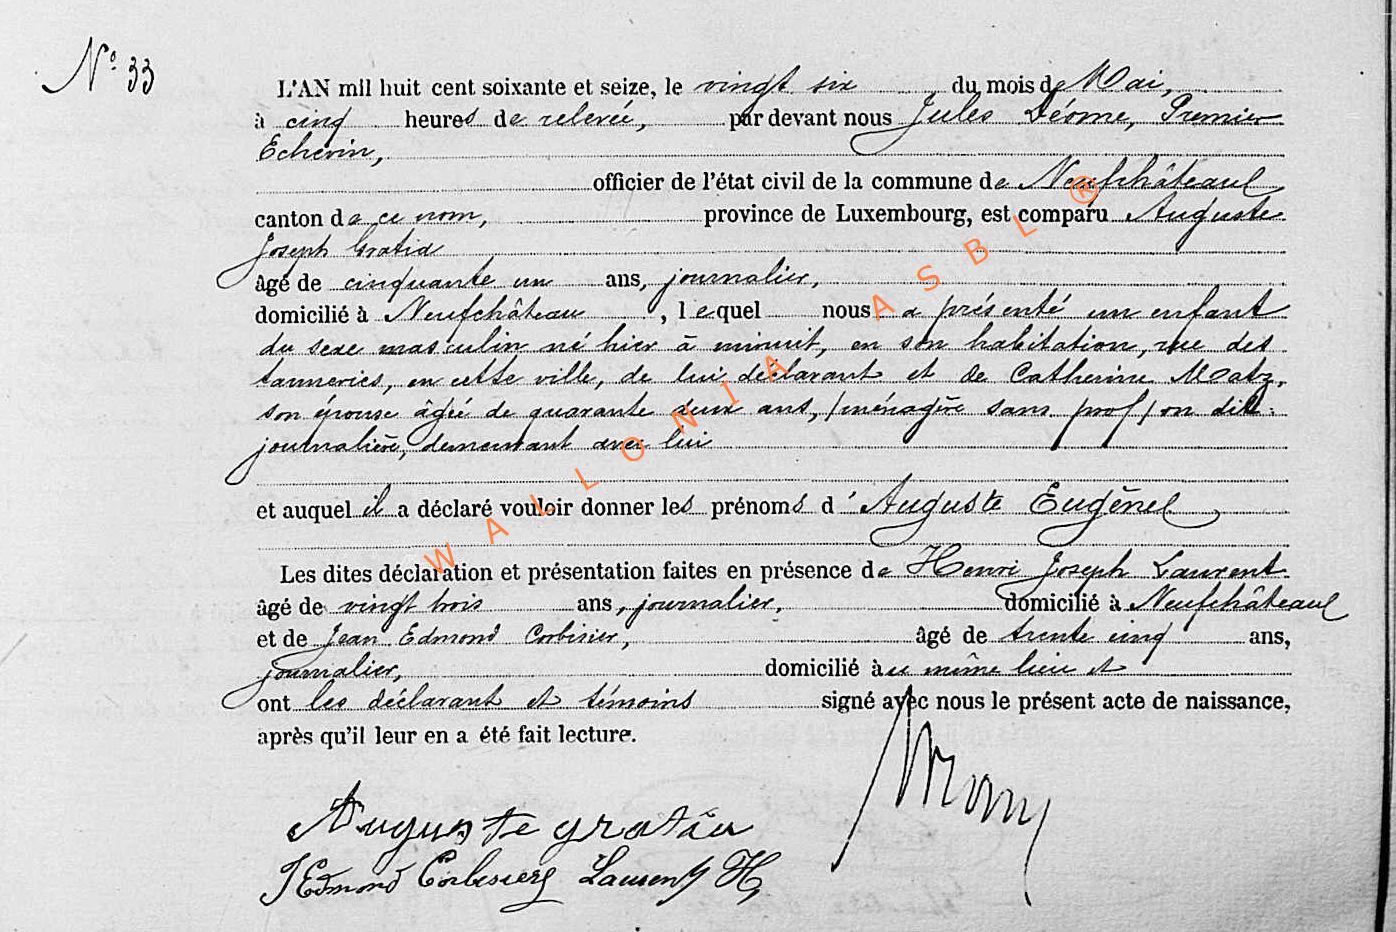 N° 33
L'AN mil huit cent soixante et seize, le vingt six du mois de Mai,
à cinq heures de relevée, par devant nous Jules Déome, Premier
Echevin,
officier de l'état civil de la commune de Neufchâteau
canton de ce nom, province de Luxembourg, est comparu Auguste
Joseph Gratia
âgé de cinquante un ans, journalier,
domicilié à Neufchâteau, lequel nous a présenté un enfant
du sexe masculin né hier à minuit, en son habitation, rue des
tanneries, en cette ville, de lui déclarant et de Catherine Matz,
son épouse âgée de quarante deux ans, (ménagère sans prof) on dit:
journalière, demeurant avec lui
et auquel il a déclaré vouloir donner les prénoms d'Auguste Eugène
Les dites déclaration et présentation faites en présence de Henri Joseph Laurent
âgé de vingt trois ans, journalier, domicilié à Neufchâteau
et de Jean Edmond Corbisier, âgé de trente cinq ans,
journalier, domicilié au même lieu et
ont les déclarant et témoins signé avec nous le présent acte de naissance,
après qu'il leur en a été fait lecture.
Auguste gratia
JEdmond Corbisier Laurent H
WALLONIA ASBL ®